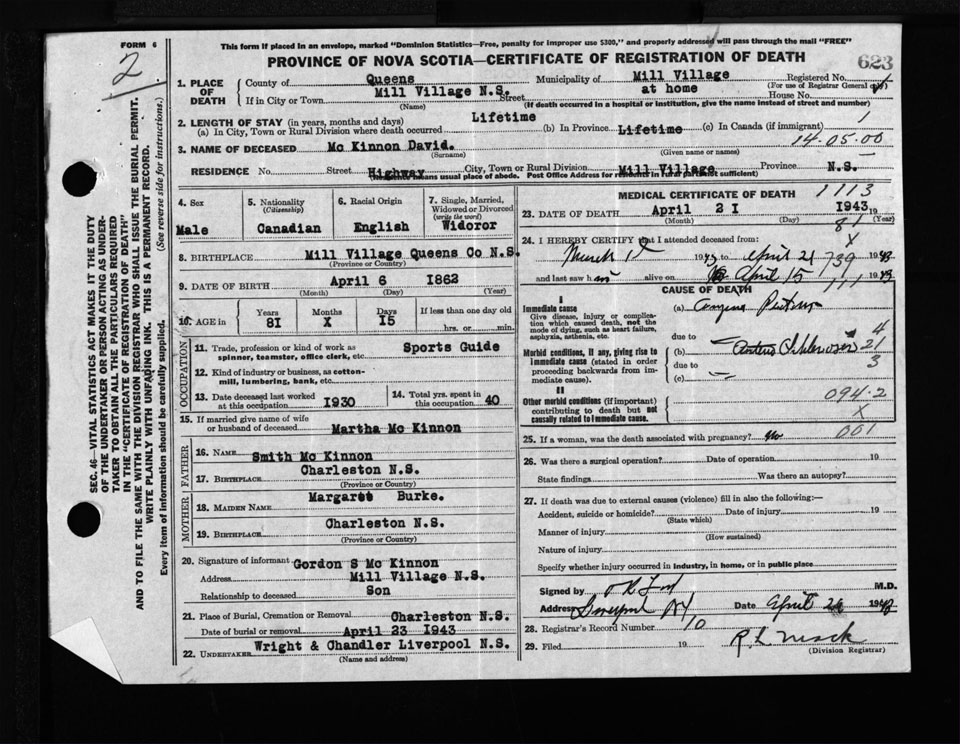 FORM 6
This form if placed in an envelope, marked "Dominion Statistics—Free, penalty for improper use $300," and properly addressed will pass through the mail "FREE"
2
PROVINCE OF NOVA SCOTIA—CERTIFICATE OF REGISTRATION OF DEATH
623
1. PLACE OF DEATH
County of Queens Municipality of Mill Village Registered No.
(For use of Registrar General only)
If in City or Town Mill Village N.S. Street at home House No.
(Name) (If death occurred in a hospital or institution, give the name instead of street and number)
2. LENGTH OF STAY (in years, months and days)
(a) In City, Town or Rural Division where death occurred Lifetime (b) In Province Lifetime (c) In Canada (if immigrant) 1
14.05.00
3. NAME OF DECEASED Mc Kinnon David.
(Surname) (Given name or names)
RESIDENCE No. Street Highway City, Town or Rural Division Mill Village Province N.S.
(Residence means usual place of abode. Post Office Address for residence in rural parts not sufficient)
4. Sex
Male
5. Nationality
(Citizenship)
Canadian
6. Racial Origin
English
7. Single, Married, Widowed or Divorced
(write the word)
Widoror
8. BIRTHPLACE Mill Village Queens Co N.S.
(Province or Country)
9. DATE OF BIRTH April 6 1862
(Month) (Day) (Year)
10. AGE in
Years Months Days If less than one day old
8I X I5 hrs. or min.
OCCUPATION
11. Trade, profession or kind of work as spinner, teamster, office clerk, etc. Sports Guide
12. Kind of industry or business, as cotton-mill, lumbering, bank, etc.
13. Date deceased last worked at this occupation I930
14. Total yrs. spent in this occupation 40
15. If married give name of wife or husband of deceased Martha Mc Kinnon
FATHER
16. NAME Smith Mc Kinnon
17. BIRTHPLACE Charleston N.S.
(Province or Country)
MOTHER
18. MAIDEN NAME Margaret Burke.
19. BIRTHPLACE Charleston N.S.
(Province or Country)
20. Signature of informant Gordon S Mc Kinnon
Address Mill Village N.S.
Relationship to deceased Son
21. Place of Burial, Cremation or Removal Charleston N.S.
Date of burial or removal April 23 1943
22. UNDERTAKER Wright & Chandler Liverpool N.S.
(Name and address)
MEDICAL CERTIFICATE OF DEATH
1113
23. DATE OF DEATH April 2I I943 19
(Month) (Day) (Year)
81
24. I HEREBY CERTIFY that I attended deceased from:
X
March 1943 to April 21 1943
739
and last saw him alive on April 15 1943
111
CAUSE OF DEATH
I
Immediate cause
Give disease, injury or complication which caused death, not the mode of dying, such as heart failure, asphyxia, asthenia, etc.
(a) Angina Pectoris
due to 4
Morbid conditions, if any, giving rise to immediate cause (stated in order proceeding backwards from immediate cause).
(b) 21
due to 3
(c)
II
Other morbid conditions (if important) contributing to death but not causally related to immediate cause.
094.2
X
25. If a woman, was the death associated with pregnancy? no 001
26. Was there a surgical operation? Date of operation 19
State findings Was there an autopsy?
27. If death was due to external causes (violence) fill in also the following:—
Accident, suicide or homicide? Date of injury 19
(State which)
Manner of injury
(How sustained)
Nature of injury
Specify whether injury occurred in industry, in home, or in public place
Signed by M.D.
Address Liverpool NS Date April 1943
28. Registrar's Record Number 10
29. Filed 19 R L Mack
(Division Registrar)
SEC. 46—VITAL STATISTICS ACT MAKES IT THE DUTY
OF THE UNDERTAKER OR PERSON ACTING AS UNDERTAKER TO OBTAIN ALL THE PARTICULARS REQUIRED
IN THE "CERTIFICATE OF REGISTRATION OF DEATH"
AND TO FILE THE SAME WITH THE DIVISION REGISTRAR WHO SHALL ISSUE THE BURIAL PERMIT.
WRITE PLAINLY WITH UNFADING INK. THIS IS A PERMANENT RECORD.
Every item of information should be carefully supplied. (See reverse side for instructions.)